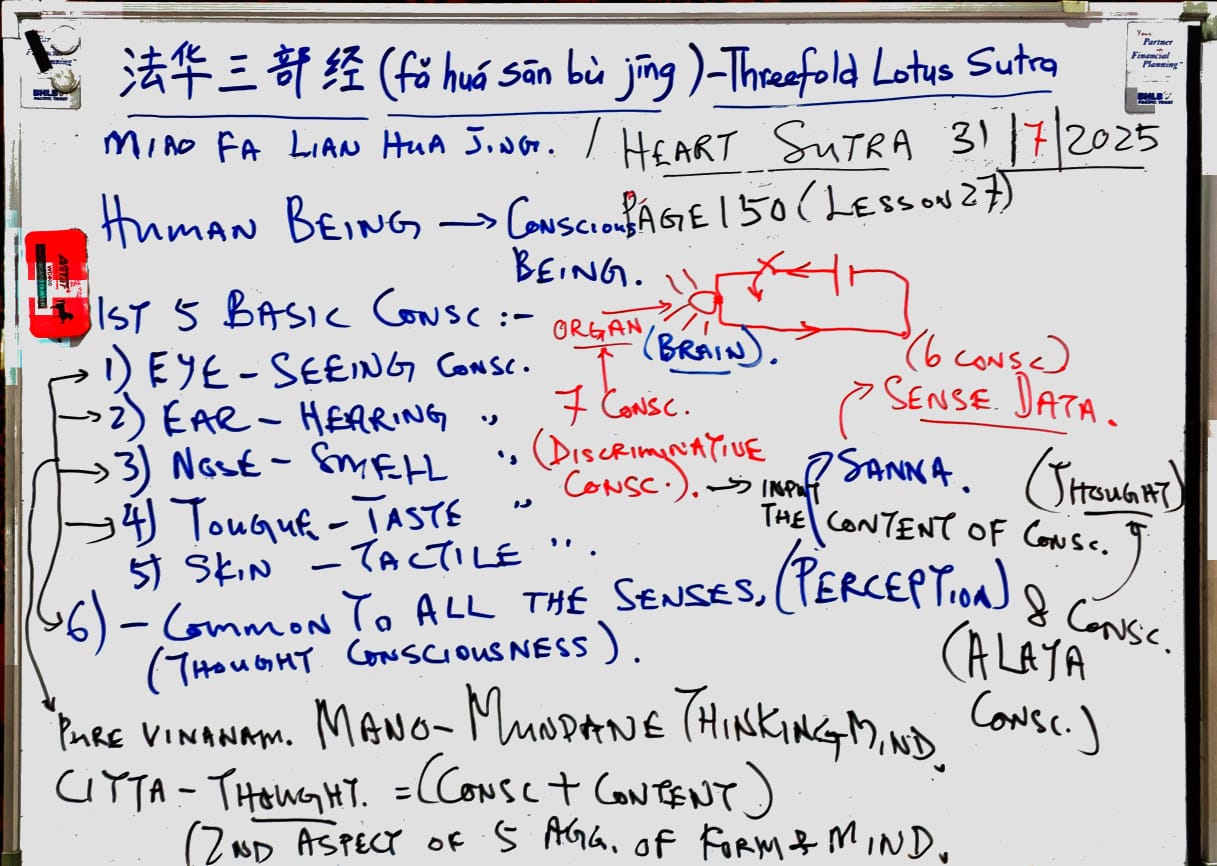 法华三部经 (fǎ huá sān bù jīng) - Threefold Lotus Sutra
MIAO FA LIAN HUA JING. / HEART SUTRA 31/7/2025
PAGE 150 (LESSON 27)
HUMAN BEING → CONSCIOUS
BEING.
1ST 5 BASIC CONSC :-
ORGAN
(BRAIN).
1) EYE - SEEING CONSC.
2) EAR - HEARING "
3) NOSE - SMELL "
4) TOUGUE - TASTE "
5) SKIN - TACTILE ".
7 CONSC.
(DISCRIMINATIVE
CONSC.). → INPUT
THE CONTENT OF CONSC.
(6 CONSC)
SENSE DATA.
SANNA. (THOUGHT)
6) - COMMON TO ALL THE SENSES, (PERCEPTION) & CONSC.
(THOUGHT CONSCIOUSNESS).
(ALAYA
CONSC.)
PURE VINANAM. MANO - MUNDANE THINKING MIND.
CITTA - THOUGHT. = (CONSC + CONTENT)
(2ND ASPECT OF 5 AGG. OF FORM & MIND.
Your
Partner in
Financial
Planning